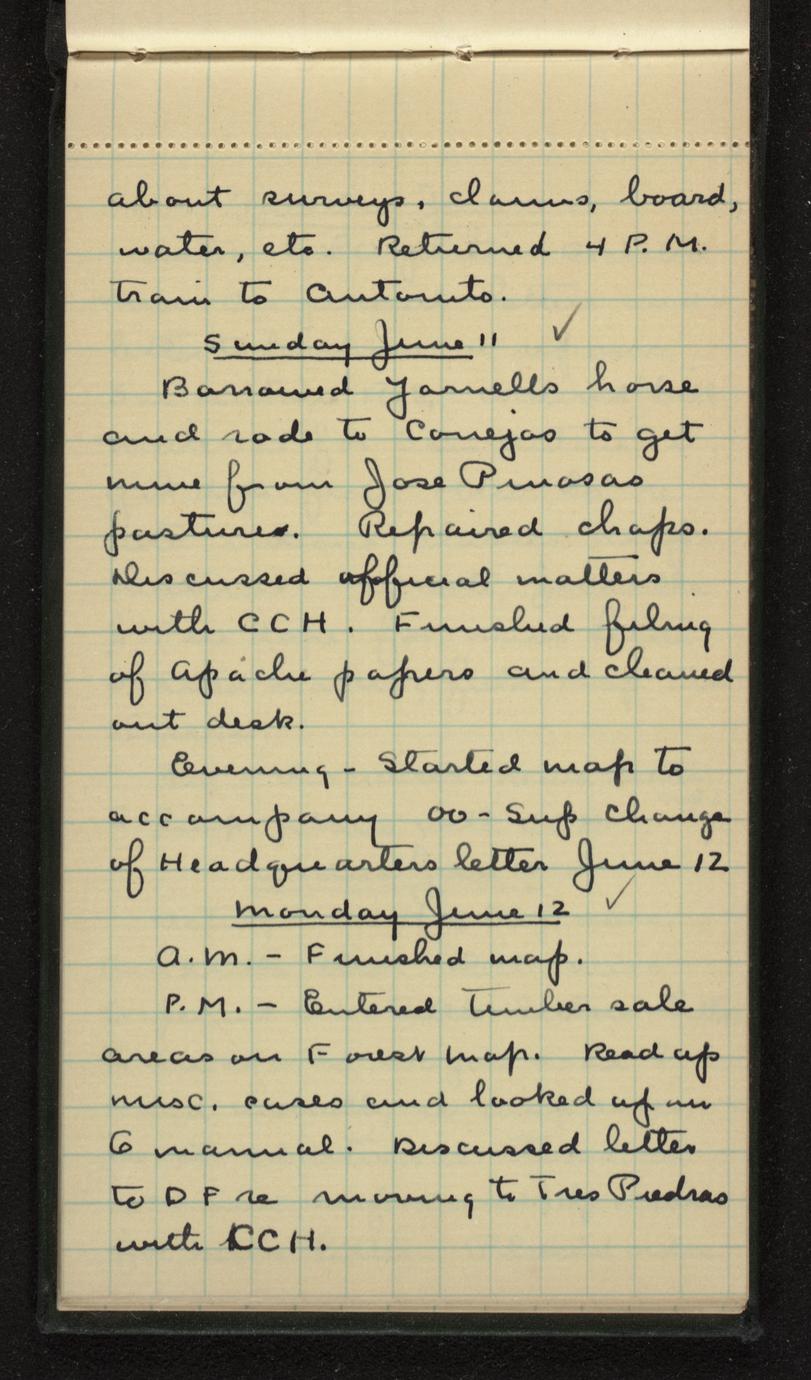 about surveys, claims, board,
water, etc. Returned 4 P.M.
train to Antonito.
Sunday June 11 ✓
Borrowed Yarnells horse
and rode to Conejos to get
mine from Jose Pinosas
pasture. Repaired chaps.
Discussed official matters
with CCH. Finished filing
of Apache papers and cleaned
out desk.
Evening - Started map to
accompany OO - Sup change
of Headquarters letter June 12
Monday June 12 ✓
A.M. - Finished map.
P.M. - Entered timber sale
areas on Forest map. Read up
misc. cases and looked up in
G manual. Discussed letter
to D F re moving to Tres Piedras
with CCH.